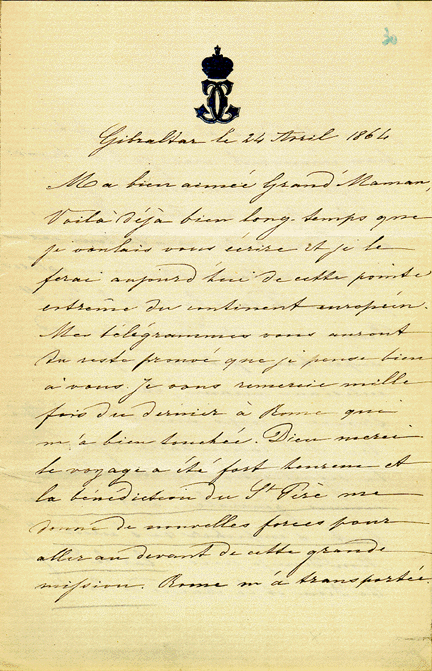 Gibraltar le 24 Avril 1864
Ma bien aimée Grand'Maman,
Voilà déjà bien long temps que
je voulais vous écrire et je le
ferai aujourd'hui de cette pointe
extrême du continent européen.
Mes télégrammes vous auront
du reste prouvé que je pense bien
à vous. Je vous remercie mille
fois du dernier à Rome qui
m'a bien touchée. Dieu merci
le voyage a été fort heureux et
la bénédiction du St Père me
donne de nouvelles forces pour
aller au devant de cette grande
mission. Rome m'a transportée.